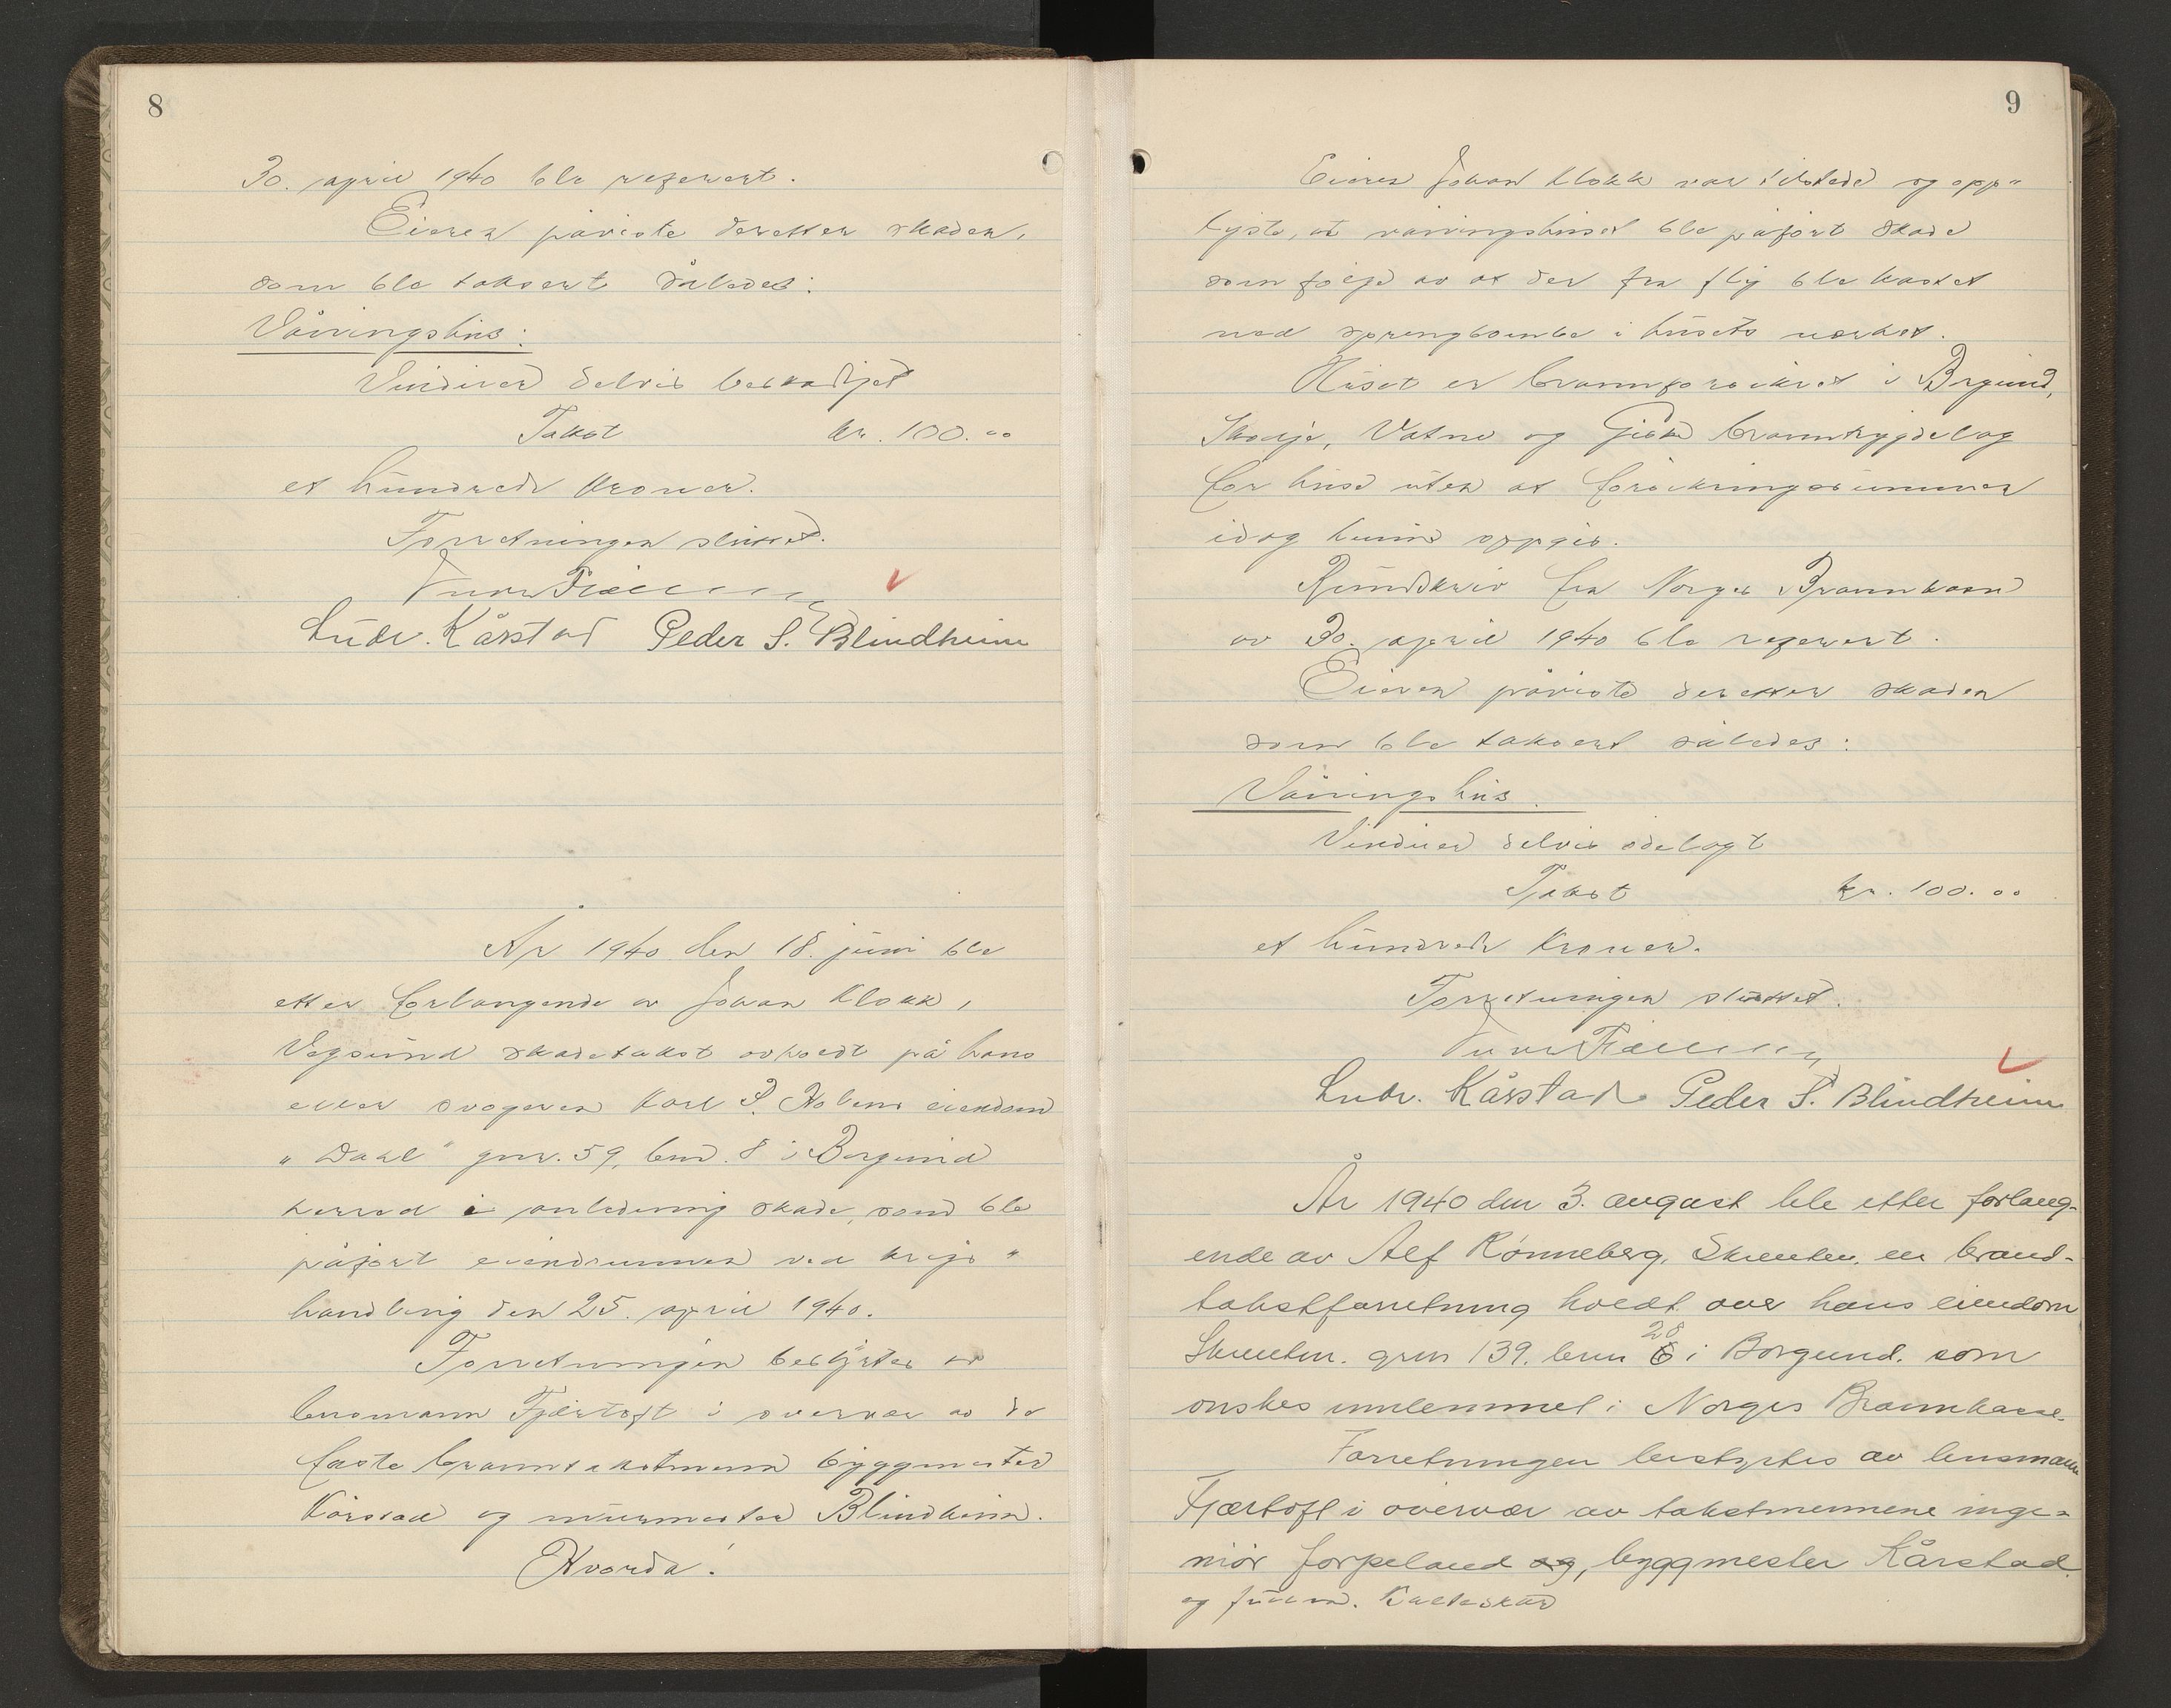 8
30. april 1940 ble referert.
Eieren påviste deretter skaden,
som ble taksert således:
Våningshus:
Vinduer delvis beskadiget
Takst kr. 100.00
et hundrede kroner.
Forretningen sluttet.
Ludv. Kårstad Peder S. Blindheim
År 1940 den 18. juni ble
etter forlangende av Johan Klokk,
Vegsund skadetakst avholdt på hans
eller svogeren Karl P. Holens eiendom
„Dahl" gnr. 59, bnr. 8 i Borgund
herred i anledning skade, som ble
påført eiendommen ved krigs"
handling den 25. april 1940.
Forretningen bestyrtes av
lensmann Fjærtoft i overvær av de
faste branntakstmenn byggmester
Kårstad og murmester Blindheim.
Hvorda!
9
Eieren Johan Klokk var tilstede og opp"
lyste, at våningshuset ble påført skade
som følge av at der fra fly ble kastet
ned sprengbombe i husets nærhet.
Huset er brannforsikret i Borgund,
Skodje, Vatne og Giske branntrygdelag
for huse uten at forsikringssummen
idag kunne oppgis.
Rundskriv fra Norges Brannkasse
av 30. april 1940 ble referert.
Eieren påviste deretter skaden
som ble taksert således:
Våningshus.
Vinduer delvis ødelagt
Takst kr. 100.00
et hundrede kroner.
Forretningen sluttet.
Ludv. Kårstad Peder S. Blindheim
År 1940 den 3. august ble etter forlang-
ende av Alf Rønneberg, Skuulen, en brand-
takstforretning holdt over hans eiendom
28
gnr 139. bnr 6 i Borgund. som
ønskes innlemmet i Norges Brannkasse.
Forretningen bestyrtes av lensmann
Fjærtoft i overvær av takstmennene inge-
niør Jorpeland og, byggmester Kårstad
og